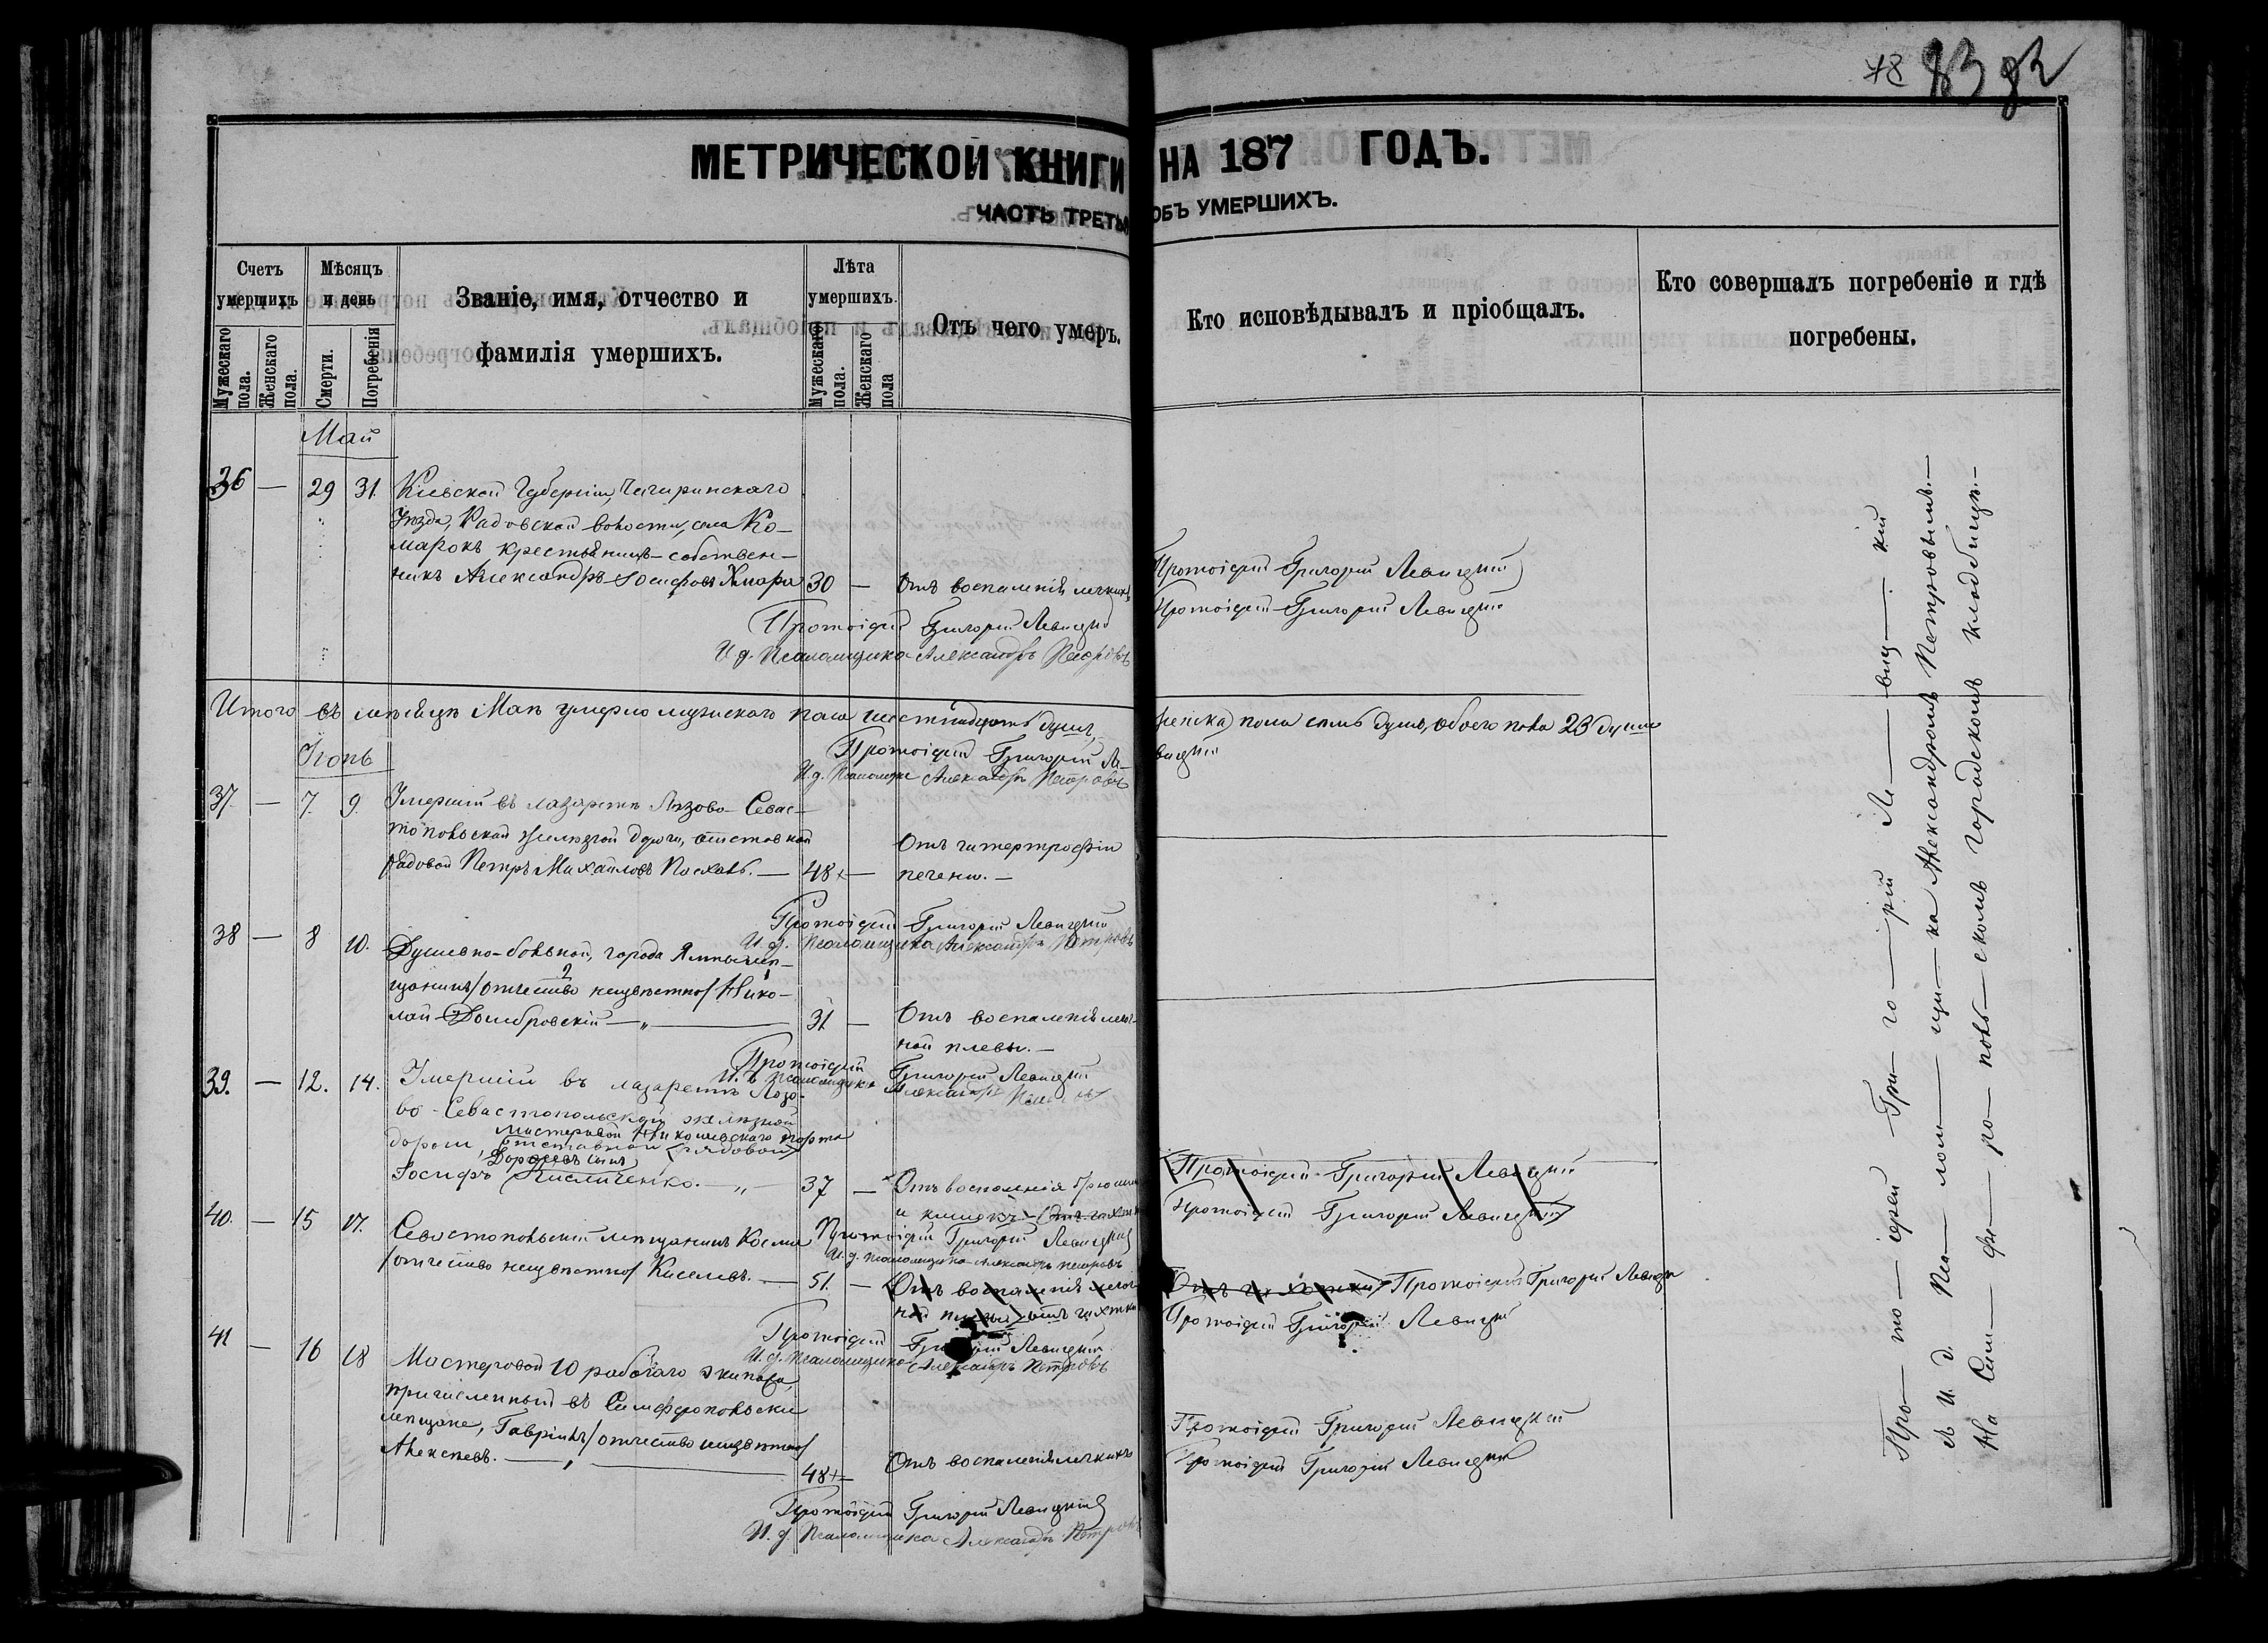 78 83 82
МЕТРИЧЕСКОЙ КНИГИ НА 187 ГОДЪ.
ЧАСТЬ ТРЕТЬ ОБЪ УМЕРШИХЪ.
Счетъ умершихъ
Мужескаго пола.
Женскаго пола.
Мѣсяцъ и день
Смерти.
Погребенія
Званіе, имя, отчество и
фамилія умершихъ.
Лѣта умершихъ.
Мужескаго пола.
Женскаго пола
Отъ чего умеръ.
Кто исповѣдывалъ и пріобщалъ.
Кто совершалъ погребеніе и гдѣ
погребены.
Май
36 — 29 31. Кіевской Губерніи, Чигиринскаго
Уѣзда, Радовской волости, села Ко-
марокъ крестьянинъ-собствен-
никъ Александръ Іосифовъ 30 — Отъ воспаленія легкихъ
Протоіерей Григорій Левицкій
Протоіерей Григорій Левицкій
Протоіерей Григорій Левицкій
И. д. Псаломщика Александръ Петровъ
Итого въ мѣсяцѣ Маѣ умерло мужескаго пола шестнадцать душъ,
женска пола семь душъ, обоего пола 23 души
Іюнь
Протоіерей Григорій Ле-
вицкій
И. д. Псаломщика Александръ Петровъ
37 — 7. 9. Умершій въ лазаретѣ Лозово-Севас-
топольской желѣзной дороги, отставной
рядовой Петръ Михайловъ 48 — Отъ гипертрофіи
печени. —
Протоіерей Григорій Левицкій
И. д. Псаломщика Александръ Петровъ
38 — 8 10. Душевно-больной, города
щанинъ /отчество неизвѣстно/ Нико-
лай Домбровскій — 31 — Отъ воспаленія легоч-
ной плевы. —
Протоіерей Григорій Левицкій
И. д. Псаломщика Александръ
39. — 12. 14. Умершій въ лазаретѣ Лозо-
во-Севастопольской желѣзной
мастеровой Николаевскаго порта
дороги, отставной рядовой
сынъ
Іосифъ Кисличенко. — 37 — Отъ воспаленія брюшины
и кишокъ
Протоіерей Григорій Левицкій
Протоіерей Григорій Левицкій
Протоіерей Григорій Левицкій
И. д. псаломщика Александръ Петровъ
40. — 15 17. Севастопольскій мѣщанинъ Косма
/отчество неизвѣстно/ Киселевъ. — 51. — Отъ воспаленія легоч-
ной плевы отъ чахотки
Отъ чахотки Протоіерей Григорій Левицк
Протоіерей Григорій Левицкій
Протоіерей Григорій Левицкій
И. д. Псаломщика Александръ Петровъ
41 — 16 18 Мастеровой 10 рабочаго экипажа,
причисленный въ Симферопольскіе
мѣщане, Гавріилъ /отчество неизвѣстно/
Алексѣевъ. — 48 — Отъ воспаленія легкихъ
Протоіерей Григорій Левицкій
Протоіерей Григорій Левицкій
Протоіерей Григорій Левицкій
И. д. Псаломщика Александръ Петровъ
Про-то-іерей Гри-го-рій Ле-виц-кій
съ И. д. Пса-лом-щи-ка Александромъ Петровымъ.—
На Сим-фе-ро-поль-скомъ городскомъ кладбищѣ.—